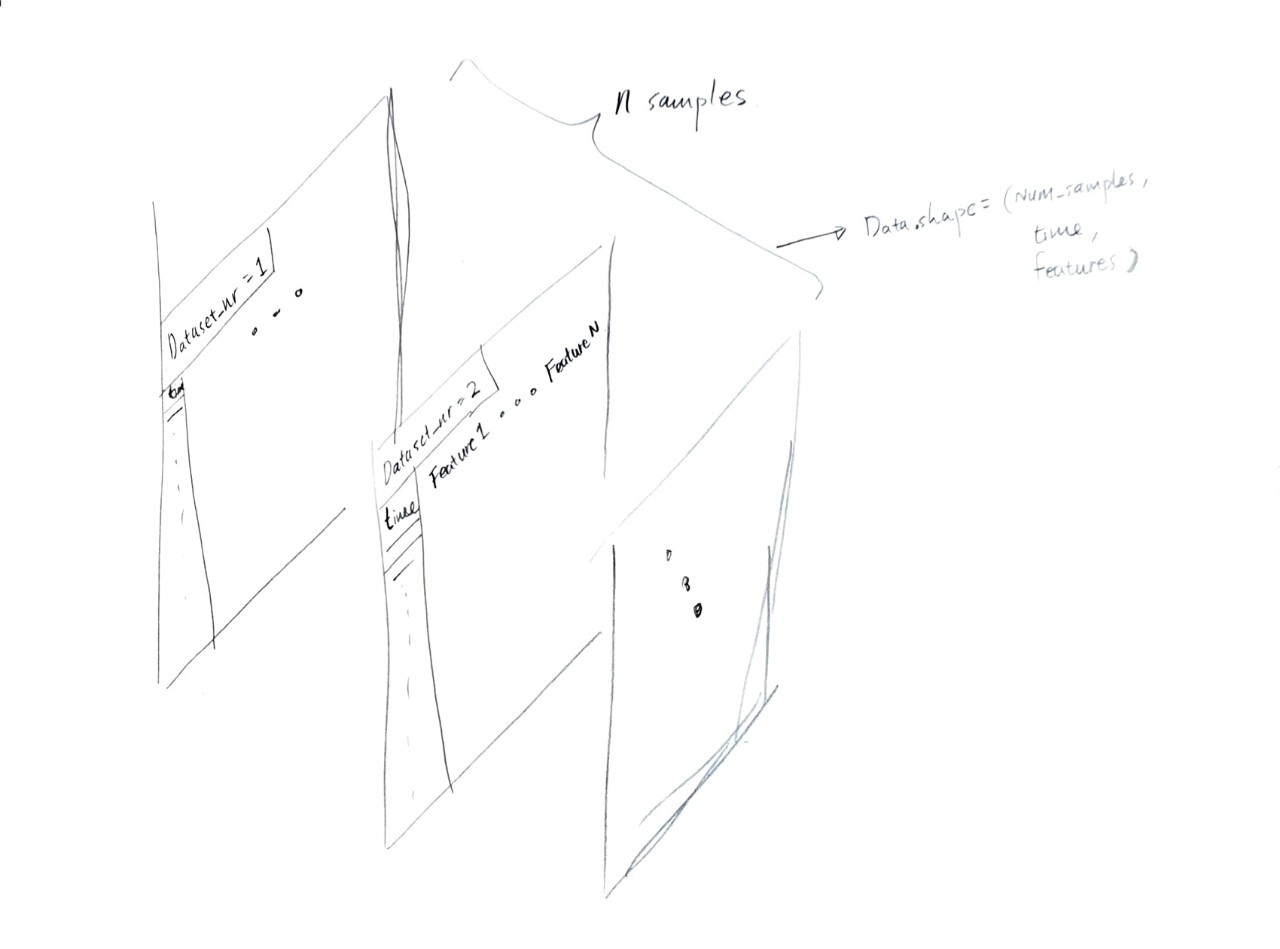 n samples
Data.shape = (Num_samples,
time,
features)
Dataset_nr = 1
Dataset_nr = 2
Feature 1 . . . Feature N
time